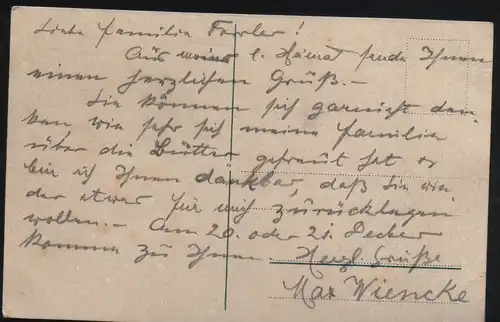 Liebe Familie Forrler!
Aus meiner l. Heimat sende Ihnen
einen herzlichen Grüß.-
Sie können sich garnicht den-
ken wie sehr sich meine Familie
über die Bütter gefreut hat es
bin ich Ihnen dankbar, daß Sie wie
der etwas für mich zurücklegen
wollen.- Am 20. oder 21. Dezber
komme zu Ihnen. Herzl Grüße
Max Wiencke